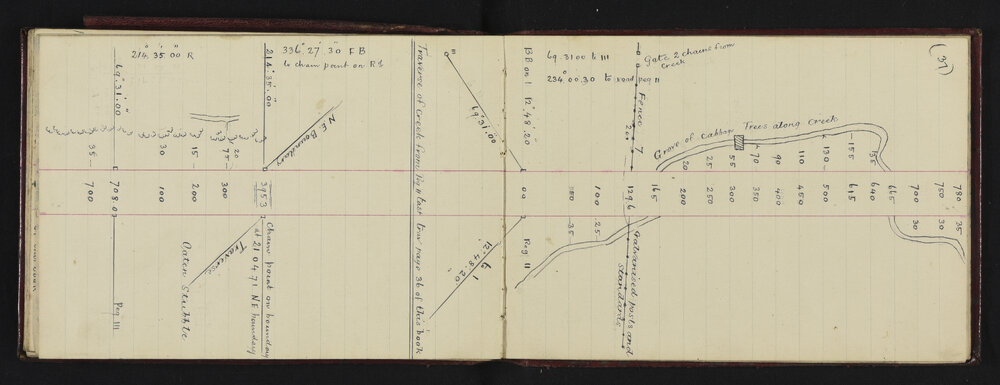 (37)
Gate 2 chains from
Creek
69.31.00 to III
234°.00.30 to road peg II
Fence 7
200
Grove of Cabbage Trees along Creek
20
25
55
70
90
110
130
155
155
165
200
250
300
350
400
450
500
615
640
665
700
750
780
30
30
35
1296
Galvanised posts and
standards
100
25
50
35
00
Peg II
BB on I 12°.48'.20"
III
69°.31'.00"
12°.48'.20"
to I
Traverse of Creek from Peg II last line page 36 of this book
336°.27'.30" F B
to chain point on R1
214°.35'.00"
NE Boundary
3953
Chain point on boundary
at 210471 NE boundary
214°.35'.00" R
69°.31'.00"
20
75
15
30
35
300
200
100
708.07
700
Traverse
Oaten Stubble
Peg III